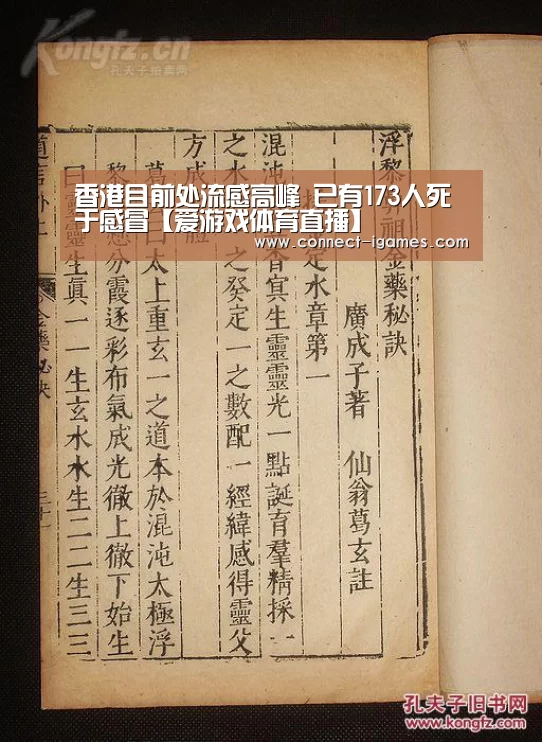 Kongfz.cn
孔夫子拍卖网
浮黎鼻祖金藥秘訣
廣成子著 仙翁葛玄註
定水章第一
混沌 杳冥生靈靈光一點誕育羣精採一
之水 之癸定一之數配一經緯感得靈父
方成 體
葛 曰太上重玄一之道本於混沌太極浮
黎 悬分霞逐彩布氣成光徹上徹下始生
曰靈靈生眞一一生玄水水生二二生三三
金藥秘訣
三十
香港目前处流感高峰 已有173人死
于感冒【爱游戏体育直播】
www.connect-igames.com
孔夫子旧书网
www.kongfz.com